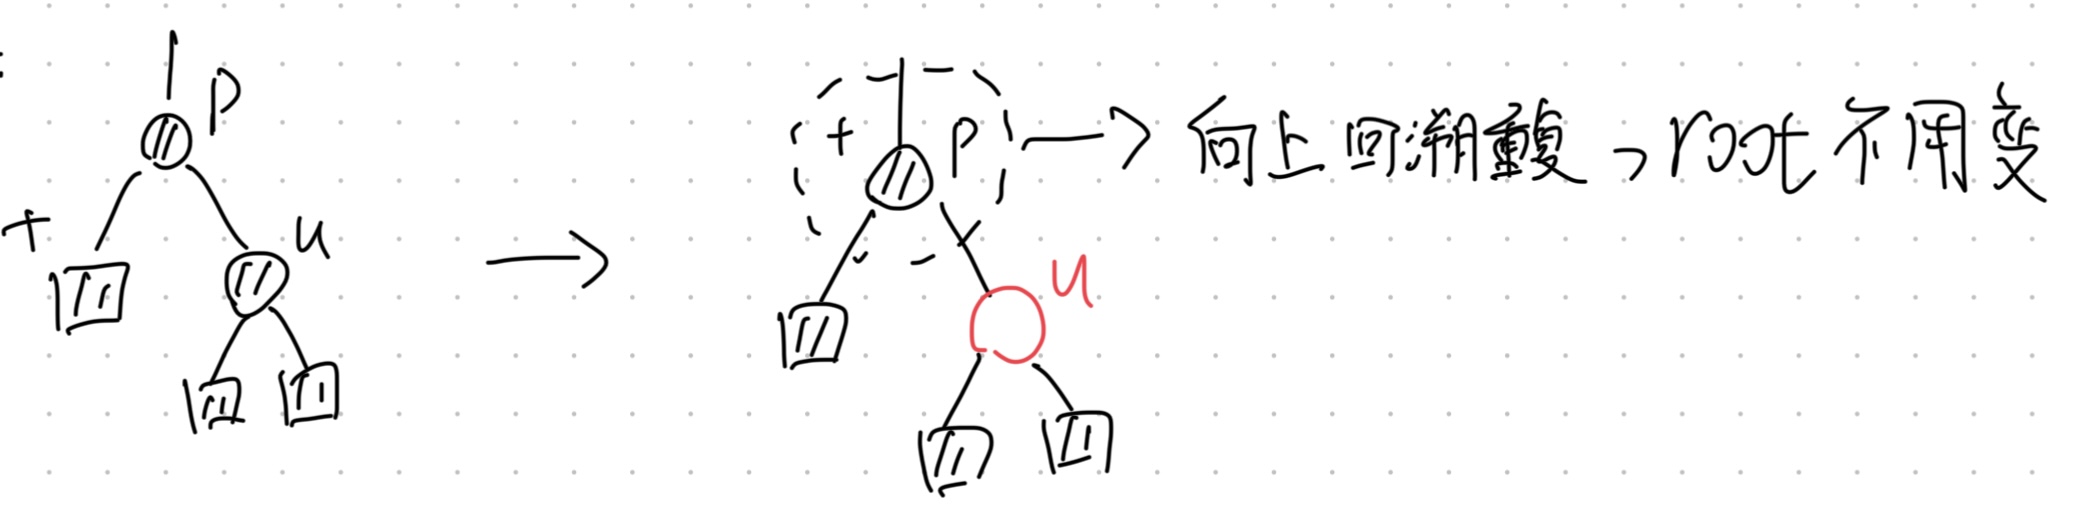 P
+
u
+
P
u
向上回溯重複，root 不用変